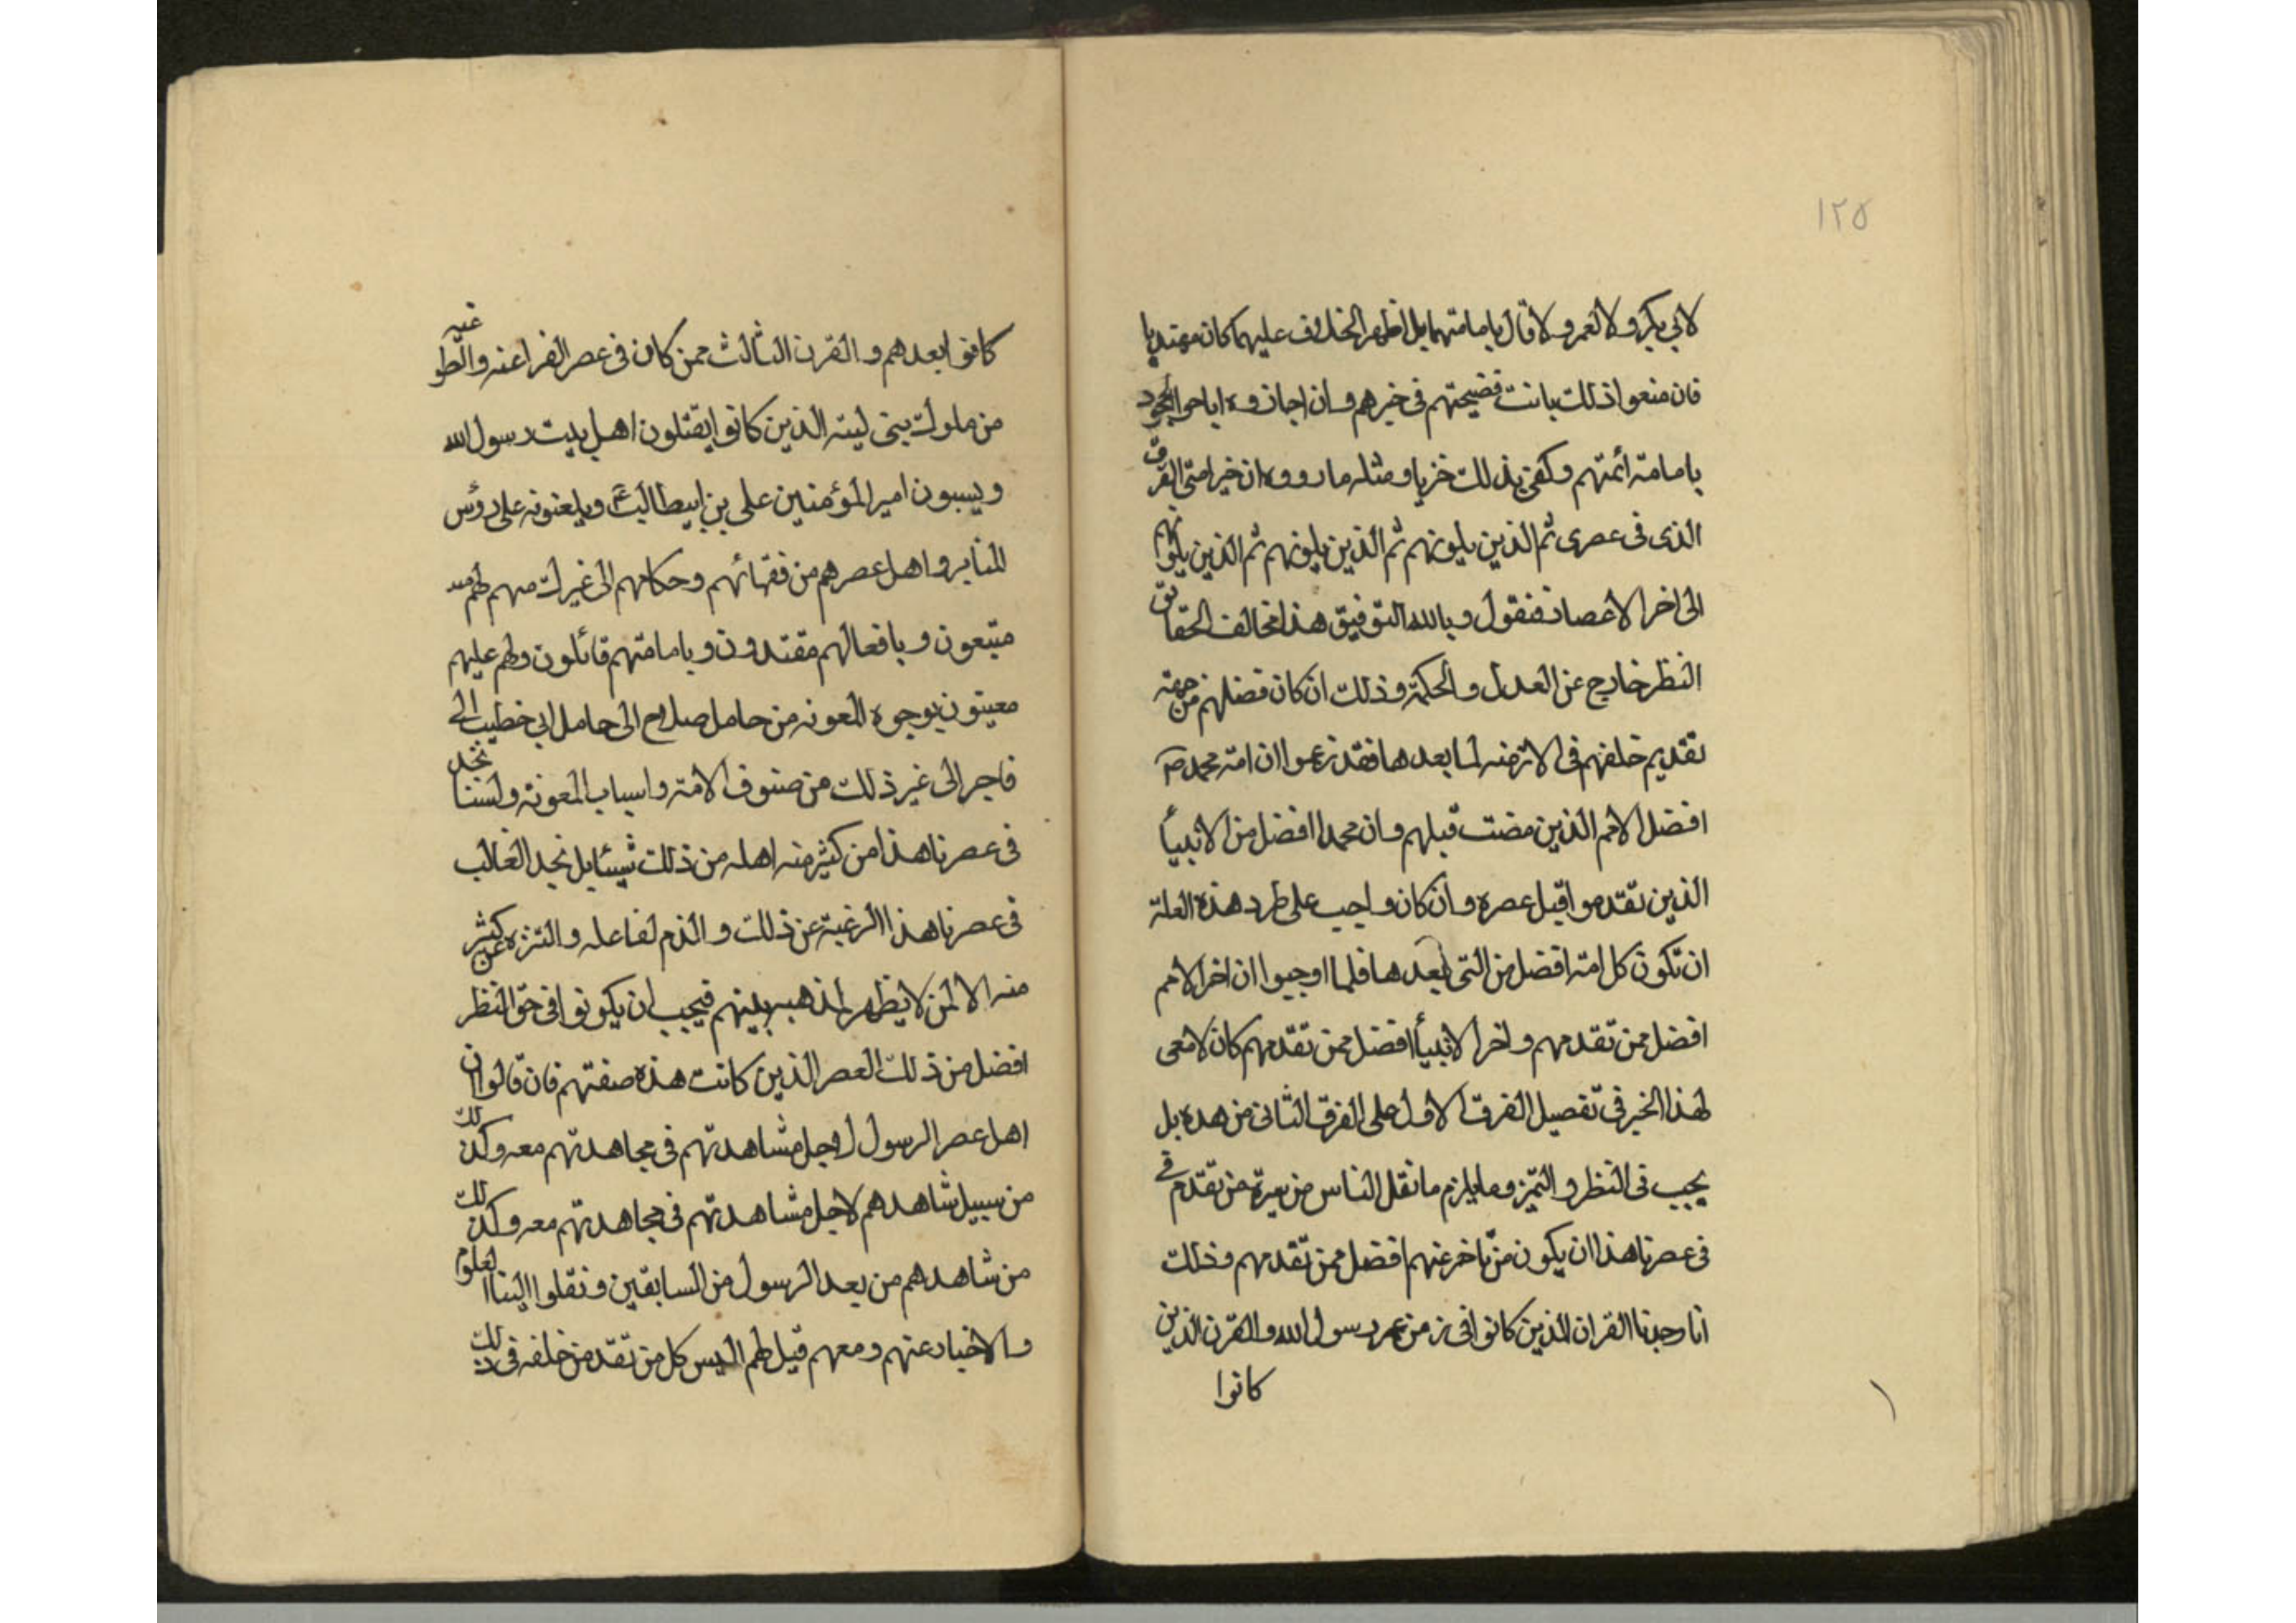 ١٢٥
لابي بكر و لا لعمر و لا قال بامامتهما بل اظهر الخلاف عليهما كان مهتديا
فان منعوا ذلك بانت فضيحتهم فى خبرهم و ان اجازوه اباحوا الجحود
بامامة ائمتهم و كفى بذلك خزيا و مثله ما رووه ان خير امتى القرن
الذى فى عصرى ثم الذين يلونهم ثم الذين يلونهم ثم الذين يلونهم
الى اخر الاعصار فنقول و بالله التوفيق هذا مخالف لحقايق
النظر خارج عن العدل و الحكمة و ذلك ان كان فضلهم من جهة
تقديم خلقهم فى الازمنه لما بعدها فقد زعموا ان امة محمد ص
افضل الامم الذين مضت قبلهم و ان محمدا افضل من الانبيأ
الذين تقدموا قبل عصره و ان كان واجب على طرد هذه العلة
ان تكون كل امة افضل من التى بعدها فلما اوجبوا ان اخر الامم
افضل ممن تقدمهم و اخر الانبيأ افضل ممن تقدمهم كان لامعى
لهذا الخبر فى تفصيل القرن الاول على القرن الثانى من هده بل
يجب فى النظر و التميز و ما يلزم ما نقل الناس من سيرة من تقدم فى
فى عصرنا هذا ان يكون من تاخر عنهم افضل ممن تقدمهم و ذلك
انا وجدنا القران الذين كانوا فى زمن عمر رسول الله و القرن الذين
كانوا
كانوا بعدهم و القرن الثالث ممن كان فى عصر الفراعنه و الطواغيه
من ملوك بنى ليته الذين كانوا يقتلون اهل بيت رسول الله
و يسبون امير المؤمنين على بن ابيطالب ع و يلعنونه على رؤس
المنابر و اهل عصرهم من فقهائهم و حكامهم الى غيرك مهم لهم
متبعون و بافعالهم مقتدون و بامامتهم قائلون و لهم عليهم
معينون بوجوه المعونه من حامل سلاح الى حامل ابى خطيب الى
فاجر الى غير ذلك من صنوف الامة و اسباب المعونة و لسنا نجد
فى عصرنا هذا من كثير منه اهله من ذلك شيئا بل نجد الغالب
فى عصرنا هذا الرغبة عن ذلك و الذم لفاعله و التنزه عن كثير
منه الا لمن لا يظهر لمذهبه بينهم فيجب ان يكونوا فى حق النظر
افضل من ذلك العصر الذين كانت هذه صفتهم فان قالوا ان
اهل عصر الرسول لاجل مشاهدتهم فى مجاهدتهم معه و كذلك
من سبيل شاهدهم لاجل مشاهدتهم فى مجاهدتهم معه و كذلك
من شاهدهم من بعد الرسول من السابقين و نقلوا الينا العلوم
و الاخبار عنهم و معهم قيل لهم اليس كل من تقدم من خلقه فى ذلك